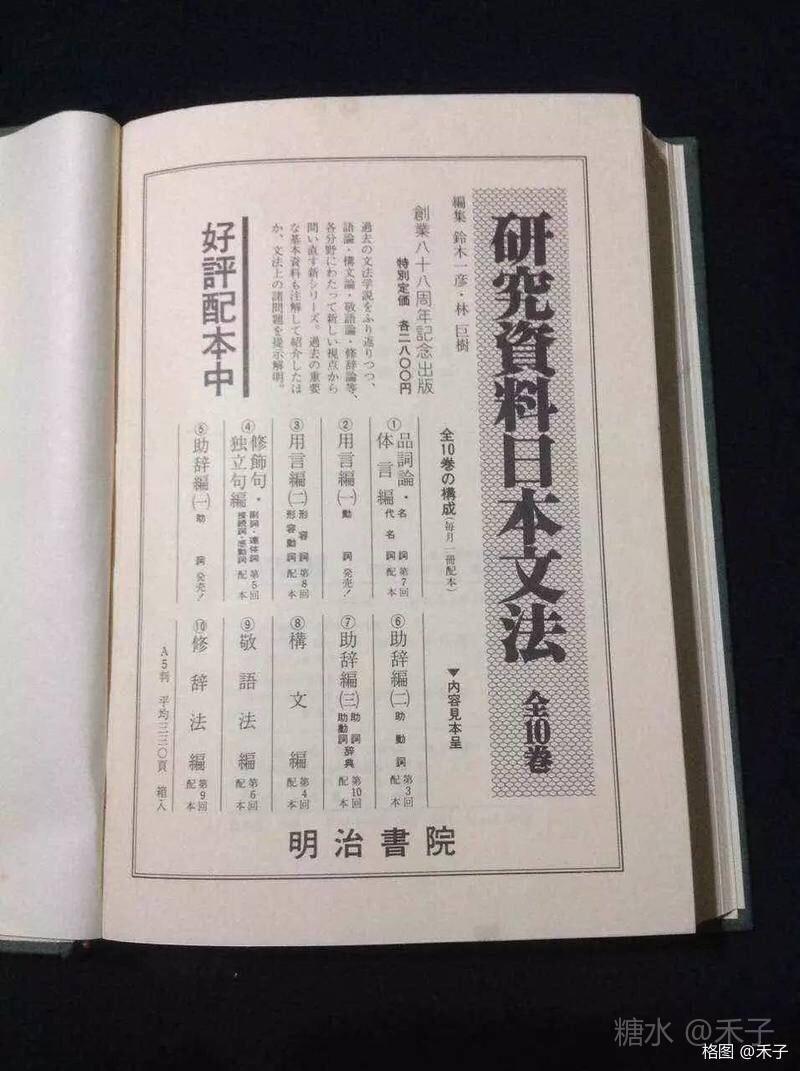 研究資料日本文法 全10巻
編集 鈴木一彦・林 巨樹
創業八十八周年記念出版
特別定価 各二八〇〇円
過去の文法学説をふり返りつつ、
語論・構文論・敬語論・修辞論等、
各分野にわたって新しい視点から
問い直す新シリーズ。過去の重要
な基本資料も注解して紹介したほ
か、文法上の諸問題を提示解明。
好評配本中
全10巻の構成(毎月一冊配本)
▼内容見本呈
①品詞論・体言編 名詞 代名詞 第7回配本
②用言編㈠ 動詞 発売!
③用言編㈡ 形容詞 形容動詞 第8回配本
④修飾句・独立句編 副詞・連体詞 接続詞・感動詞 第5回配本
⑤助辞編㈠ 助詞 発売!
⑥助辞編㈡ 助動詞 第3回配本
⑦助辞編㈢ 助詞 助動詞 辞典 第10回配本
⑧構文編 第4回配本
⑨敬語法編 第6回配本
⑩修辞法編 第9回配本
A5判 平均三三〇頁 箱入
明治書院
糖水 @禾子
格图 @禾子